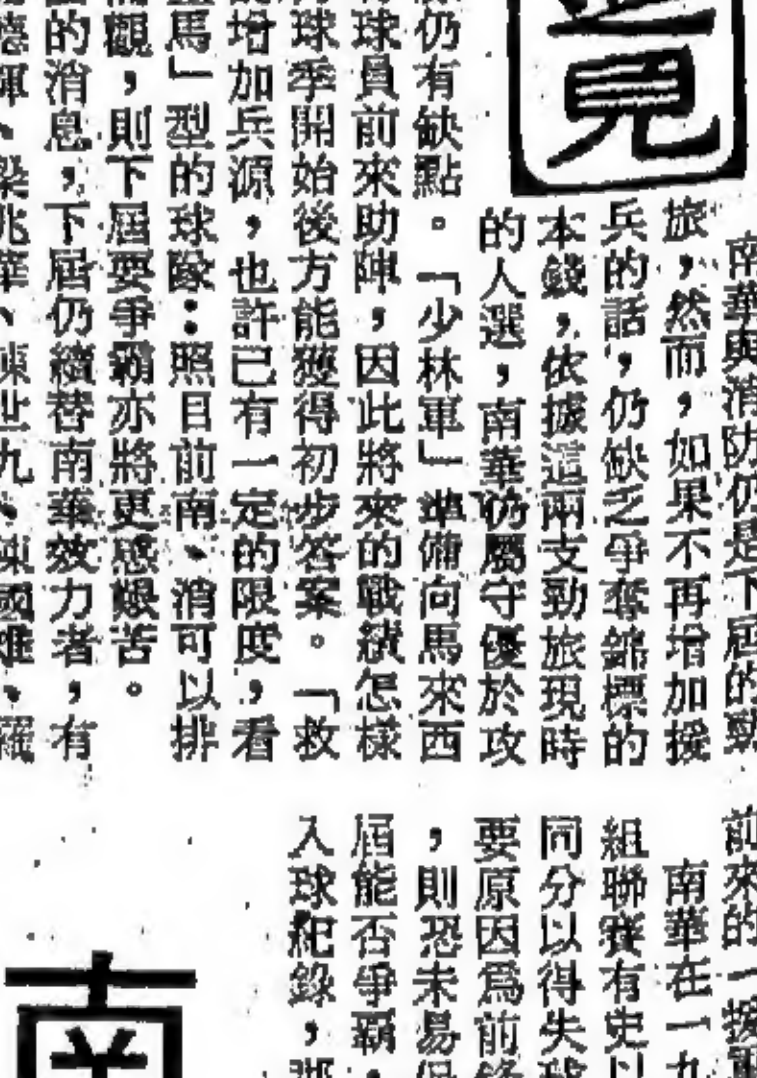 見
南華與消防仍是下屆的勁
旅,然而,如果不再增加援
兵的話,仍缺乏爭奪錦標的
本錢,依據這兩支勁旅現時
的人選,南華仍屬守優於攻
仍有缺點。「少林軍」準備向馬來西
球員前來助陣,因此將來的戰績怎樣
球季開始後方能獲得初步答案。「救
增加兵源,也許已有一定的限度,看
馬」型的球隊:照目前南、消可以排
觀,則下屆要爭霸亦將更感艱苦。
的消息,下屆仍續替南華效力者,有
輝、梁兆華、陳世九、陳國雄、羅
前來的一援軍
南華在一九
組聯賽有史以
同分以得失球
要原因為前鋒
,則恐未易
屆能否爭霸,
入球紀錄,那
南